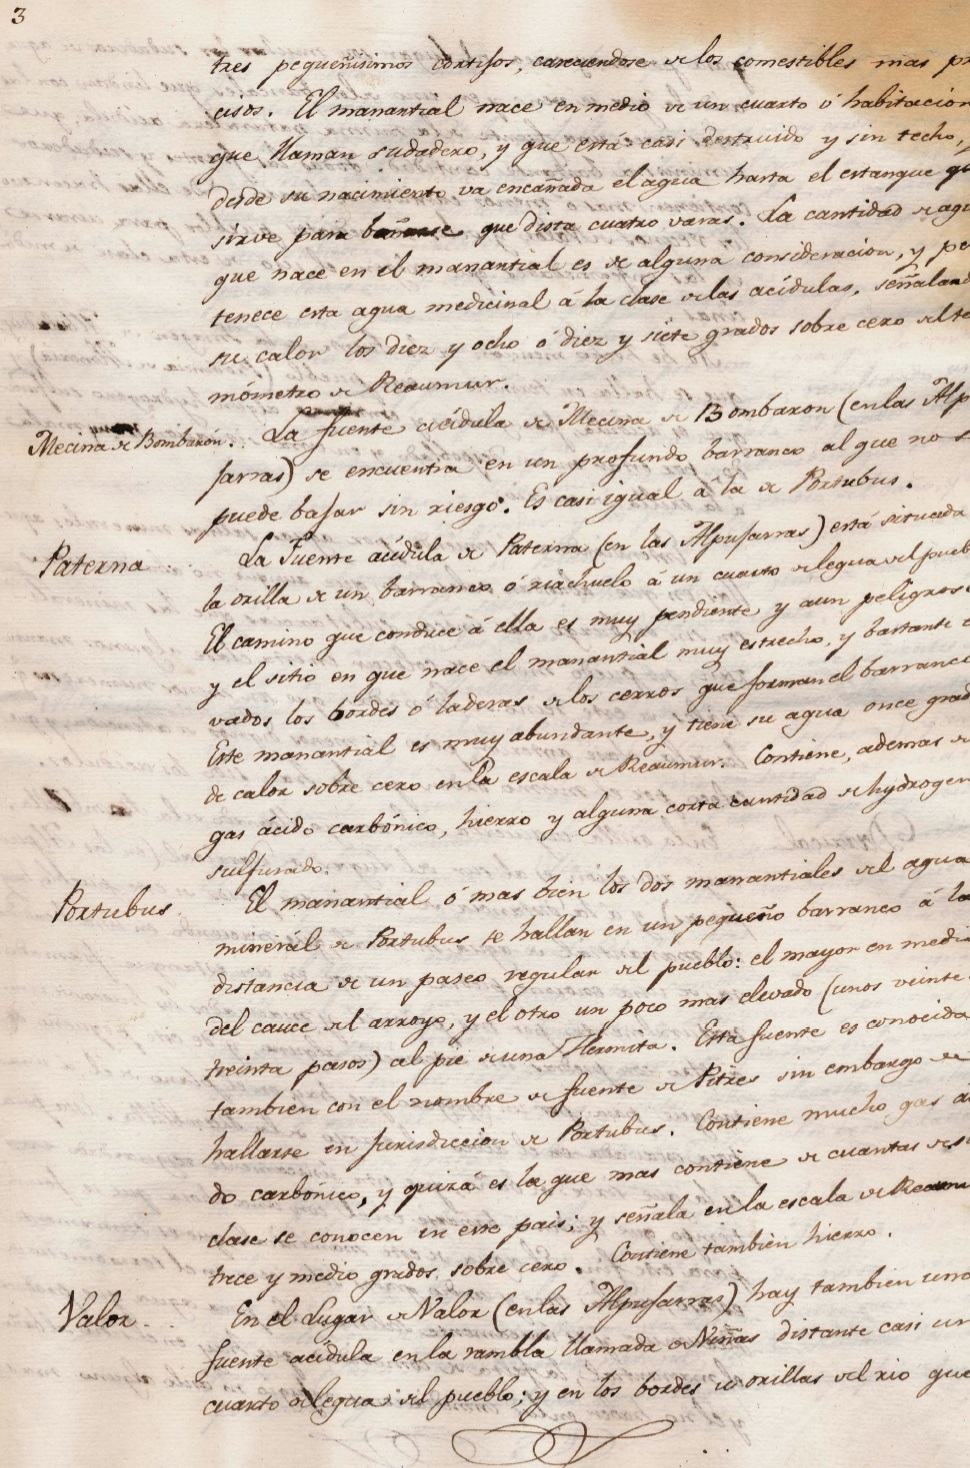 3
tres pequeñisimos cortijos, careciendose de los comestibles mas pre
cisos. El manantial nace en medio de un cuarto ó habitacion
que llaman sudadero, y que está casi destruido y sin techo,
desde su nacimiento va encañada el agua hasta el estanque qu
sirve para bañarse que dista cuatro varas. La cantidad de agu
que nace en el manantial es de alguna consideracion, y per
tenece esta agua medicinal á la clase de las acídulas, señaland
su calor los diez y ocho ó diez y siete grados sobre cero del te
mómetro de Reaumur.
Mecina de Bombarón. La fuente acídula de Mecina de Bombaron (en las Alp
jarras) se encuentra en un profundo barranco al que no s
puede bajar sin riesgo. Es casi igual á la de Portubus.
Paterna La Fuente acídula de Paterna (en las Alpujarras) está situada
la orilla de un barranco ó riachuelo á un cuarto de legua del pueb
El camino que conduce á ella es muy pendiente y aun peligroso
y el sitio en que nace el manantial muy estrecho, y bastante e
vados los bordes ó laderas de los cerros que forman el barranco
Este manantial es muy abundante, y tiene su agua once grad
de calor sobre cero en la escala de Reaumur. Contiene, ademas de
gas ácido carbónico, hierro y alguna corta cantidad de hydrogen
sulfurado.
Portubus El manantial ó mas bien los dos manantiales del agua
minerál de Portubus se hallan en un pequeño barranco á la
distancia de un paseo regular del pueblo: el mayor en medio
del cauce del arroyo, y el otro un poco mas elevado (unos veinte
treinta pasos) al pie de una Hermita. Esta fuente es conocida
tambien con el nombre de fuente de Pitres sin embargo de
hallarse en jurisdiccion de Portubus. Contiene mucho gas áci
do carbónico, y quizá es la que mas contiene de cuantas de su
clase se conocen en este pais; y señala en la escala de Reaum
trece y medio grados sobre cero. Contiene tambien hierro.
Valor. En el Lugar de Valor (en las Alpujarras) hay tambien una
fuente acídula en la rambla llamada de Niñas distante casi un
cuarto de legua del pueblo; y en los bordes u orillas del rio que